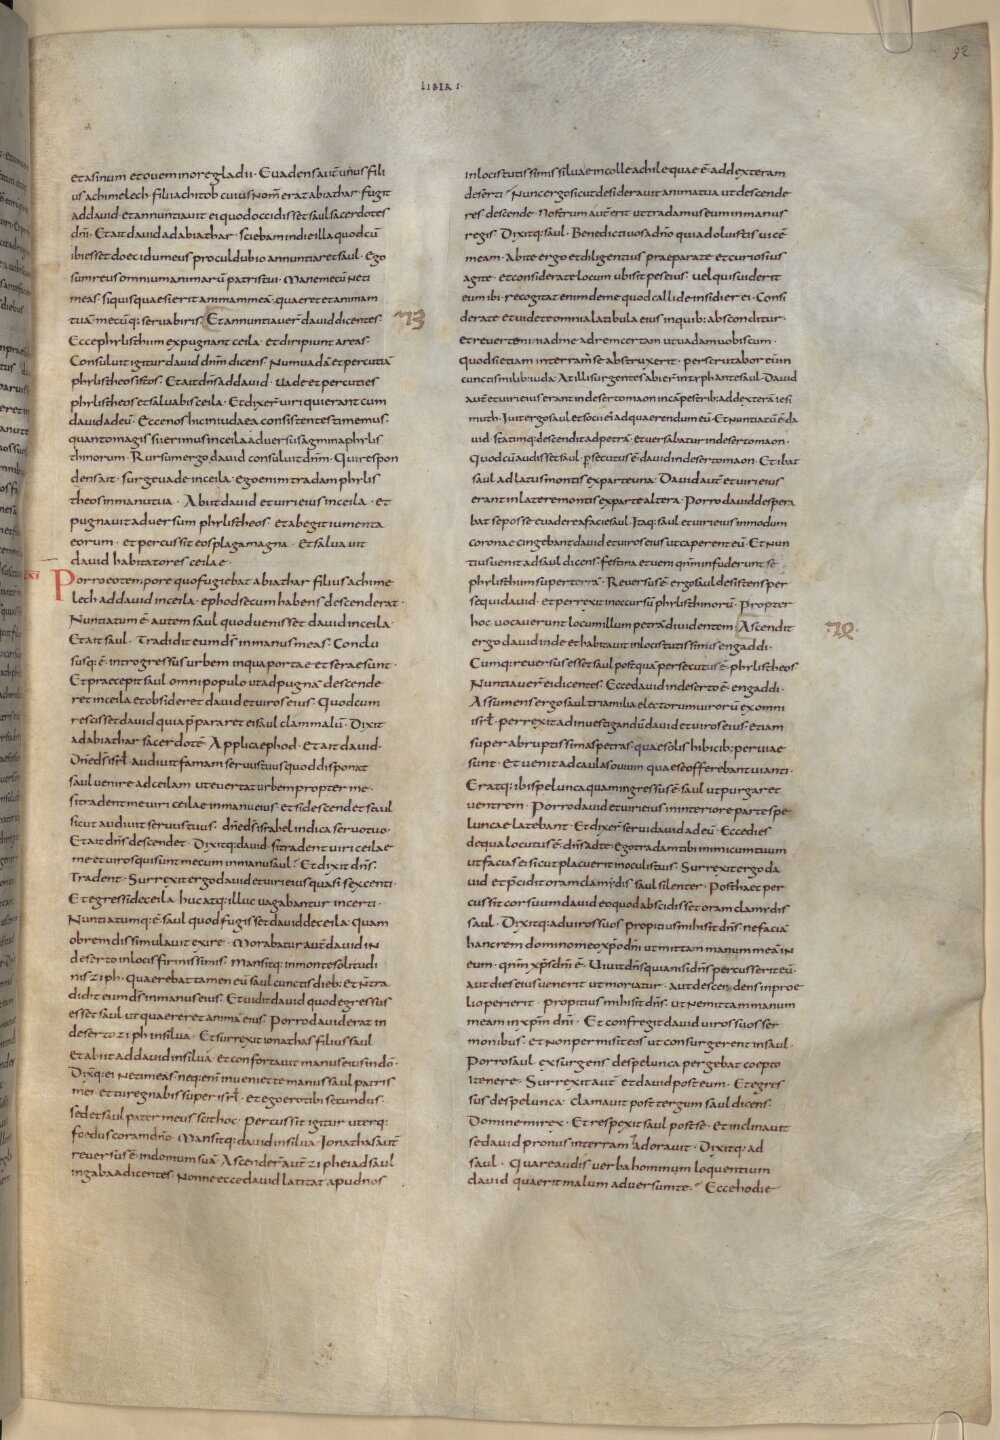 92
LIBER I
et asinum et ovem in ore gladii · Evadens aut̄ unus fili
us achimelech filii achitob cuius nom̄ erat abiathar · fugit
ad david et annuntiavit ei quod occidisset saul sacerdotes
dn̄i · Et ait david ad abiathar · sciebam in die illa quod cū
ibi esset doec idumeus proculdubio annuntiaret saul · Ego
sum reus omnium animarū patris tui · Mane mecū ne ti
meas · si quis quaesierit animam meā · quaeret et animam
tuā · mecūq: servaberis · Et annuntiaver̄ david dicentes ·
23
Ecce phylisthim expugnant ceila · et diripiunt areas ·
Consuluit igitur david dn̄m dicens · Num vadā et percutiā
phylistheos istos · Et ait dn̄s ad david · Vade et percuties
phylistheos et salvabis ceila · Et dixer̄ viri qui erant cum
david ad eū · Ecce nos hic in iudaea consistentes timemus ·
quanto magis si ierimus in ceila adversus agmina phylis
thinorum · Rursum ergo david consuluit dn̄m · Qui respon
dens ait · surge vade in ceila · ego enim tradam phylis
theos in manu tua · Abiit david et viri eius in ceila · et
pugnavit adversum phylistheos · et abegit iumenta
eorum · et percussit eos plaga magna · Et salvavit
david habitatores ceilae ·
Porro eo tempore quo fugiebat abiathar filius achime
lech ad david in ceila · ephod secum habens descenderat ·
Nuntiatum ē autem saul quod venisset david in ceila
Et ait saul · Tradidit eum ds̄ in manus meas · Conclu
susq: ē introgressus urbem in qua portae et serae sunt ·
Et praecepit saul omni populo ut ad pugnā descende
ret in ceila et obsideret david et viros eius · Quod cum
rescisset david quia p̄pararet ei saul clam malū · Dixit
ad abiathar sacerdotē · Applica ephod · Et ait david ·
Dn̄e ds̄ isrl̄ · audivit famam servus tuus quod disponat
saul venire ad ceilam ut evertat urbem propter me ·
si tradent me viri ceilae in manu eius · et si descendet saul
sicut audivit servus tuus · dn̄e ds̄ israhel indica servo tuo ·
Et ait dn̄s descendet · Dixitq: david · si tradent viri ceilae
me et viros qui sunt mecum in manu saul · Et dixit dn̄s ·
Tradent · Surrexit ergo david et viri eius quasi sexcenti ·
Et egressi de ceila huc atq: illuc vagabantur incerti ·
Nuntiatumq: ē saul quod fugisset david de ceila · Quam
obrem dissimulavit exire · Morabatur aut̄ david in
deserto in locis firmissimis · Mansitq: in monte solitudi
nis ziph · Quaerebat tamen eū saul cunctis dieb: et n̄ tra
didit eum ds̄ in manus eius · Et vidit david quod egressus
esset saul ut quaereret animā eius · Porro david erat in
deserto ziph in silva · Et surrexit ionathas filius saul
et abiit ad david in silva · et confortavit manus eius in dō ·
Dixitq: ei Ne timeas · neq: enī inveniet te manus saul patris
mei · et tu regnabis super isrl̄ · et ego ero tibi secundus ·
sed et saul pater meus scit hoc · Percussit igitur uterq:
foedus coram dn̄o · Mansitq: david in silva · Ionathas aut̄
reversus ē in domum suā · Ascender̄ aut̄ ziphei ad saul
in gabaa dicentes · Nonne ecce david latitat apud nos
in locis tutissimis silvae in colle achile quae ē ad dexteram
deserti · Nunc ergo sicut desideravit anima tua ut descende
res descende · Nostrum aut̄ erit ut tradamus eum in manus
regis · Dixitq: saul · Benedicti vos a dn̄o quia doluistis vicē
meam · Abite ergo et diligentius praeparate et curiosius
agite · et considerate locum ubi sit pes eius · vel quis viderit
eum ibi · recogitat enim de me quod callide insidier ei · Consi
derate et videte omnia latibula eius in quib: absconditur ·
et revertemini ad me ad rem certam ut vadam vobiscum ·
quod si etiam in terram se abstruxerit · perscrutabor eum
in cunctis milib: iuda · At illi surgentes abier̄ in ziph ante saul · David
aut̄ et viri eius erant in deserto maon in cāpestrib: ad dexterā iesi
muth · Ivit ergo saul et socii ei ad quaerendum eū · Et nuntiatū ē da
vid · statimq: descendit ad petrā · et versabatur in deserto maon ·
Quod cū audisset saul · p̄secutus ē david in deserto maon · Et ibat
saul ad latus montis ex parte una · David aut̄ et viri eius
erant in latere montis ex parte altera · Porro david despera
bat se posse evadere a facie saul · Itaq: saul et viri eius in modum
coronae cingebant david et viros eius ut caperent eū · Et nun
tius venit ad saul dicens · festina et veni qn̄m infuderunt se
phylisthim super terrā · Reversus ē ergo saul desistens per
sequi david · et perrexit in occursū phylisthinorū · Propter
hoc vocaverunt locum illum petrā dividentem · Ascendit
ergo david inde et habitavit in locis tutissimis engaddi ·
Cumq: reversus esset saul postquā persecutus ē phylistheos
Nuntiaver̄ ei dicentes · Ecce david in deserto ē engaddi ·
Assumens ergo saul tria milia electorum virorū ex omni
isrl̄ · perrexit ad investigandū david et viros eius · etiam
super abruptissimas petras · quae solis hibicib: perviae
sunt · Et venit ad caulas ovium quae se offerebant vianti ·
Eratq: ibi spelunca quam ingressus ē saul ut purgaret
ventrem · Porro david et viri eius in interiore parte spe
luncae latebant · Et dixer̄ servi david ad eū · Ecce dies
de qua locutus ē dn̄s ad te · Ego tradam tibi inimicum tuum
ut facias ei sicut placuerit in oculis tuis · Surrexit ergo da
vid et p̄cidit oram clamydis saul silenter · Post haec per
cussit cor suum david eo quod abscidisset oram clamydis
saul · Dixitq: ad viros suos · propitius mihi sit dn̄s · ne faciā
hanc rem domino meo xp̄o dn̄i ut mittam manum meā in
eum · qn̄m xp̄s dn̄i ē · Vivit dn̄s quia nisi dn̄s percusserit eū
aut dies eius venerit ut moriatur · aut descendens in proe
lio perierit · propitius mihi sit dn̄s · ut ne mittam manum
meam in xp̄m dn̄i · Et confregit david viros suos ser
monibus · et non permisit eos ut consurgerent in saul ·
Porro saul exsurgens de spelunca pergebat coepto
itenere · Surrexit aut̄ et david post eum · Et egres
sus de spelunca · clamavit post tergum saul dicens ·
Domine mi rex · Et respexit saul post se · Et inclinavit
se david pronus in terram adoravit · Dixitq: ad
saul · Quare audis verba hominum loquentium
david quaerit malum adversum te · Ecce hodie